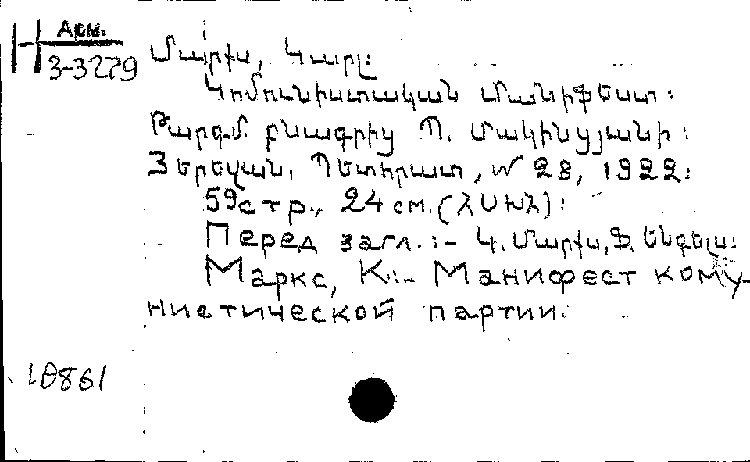 Арм.
Н
3-3279
Մարքս, Կարլ:
Կոմունիստական մանիֆեստ:
Թարգմ. բնագրից Պ. Մակինցյանի:
Յերեվան, Պետհրատ, № 28, 1922:
59 стр., 24 см. (ՀՍԽՀ):
Перед загл.:- Կ. Մարքս, Ֆ. Ենգելս:
Маркс, К.:- Манифест кому-
нистической партии.
10861